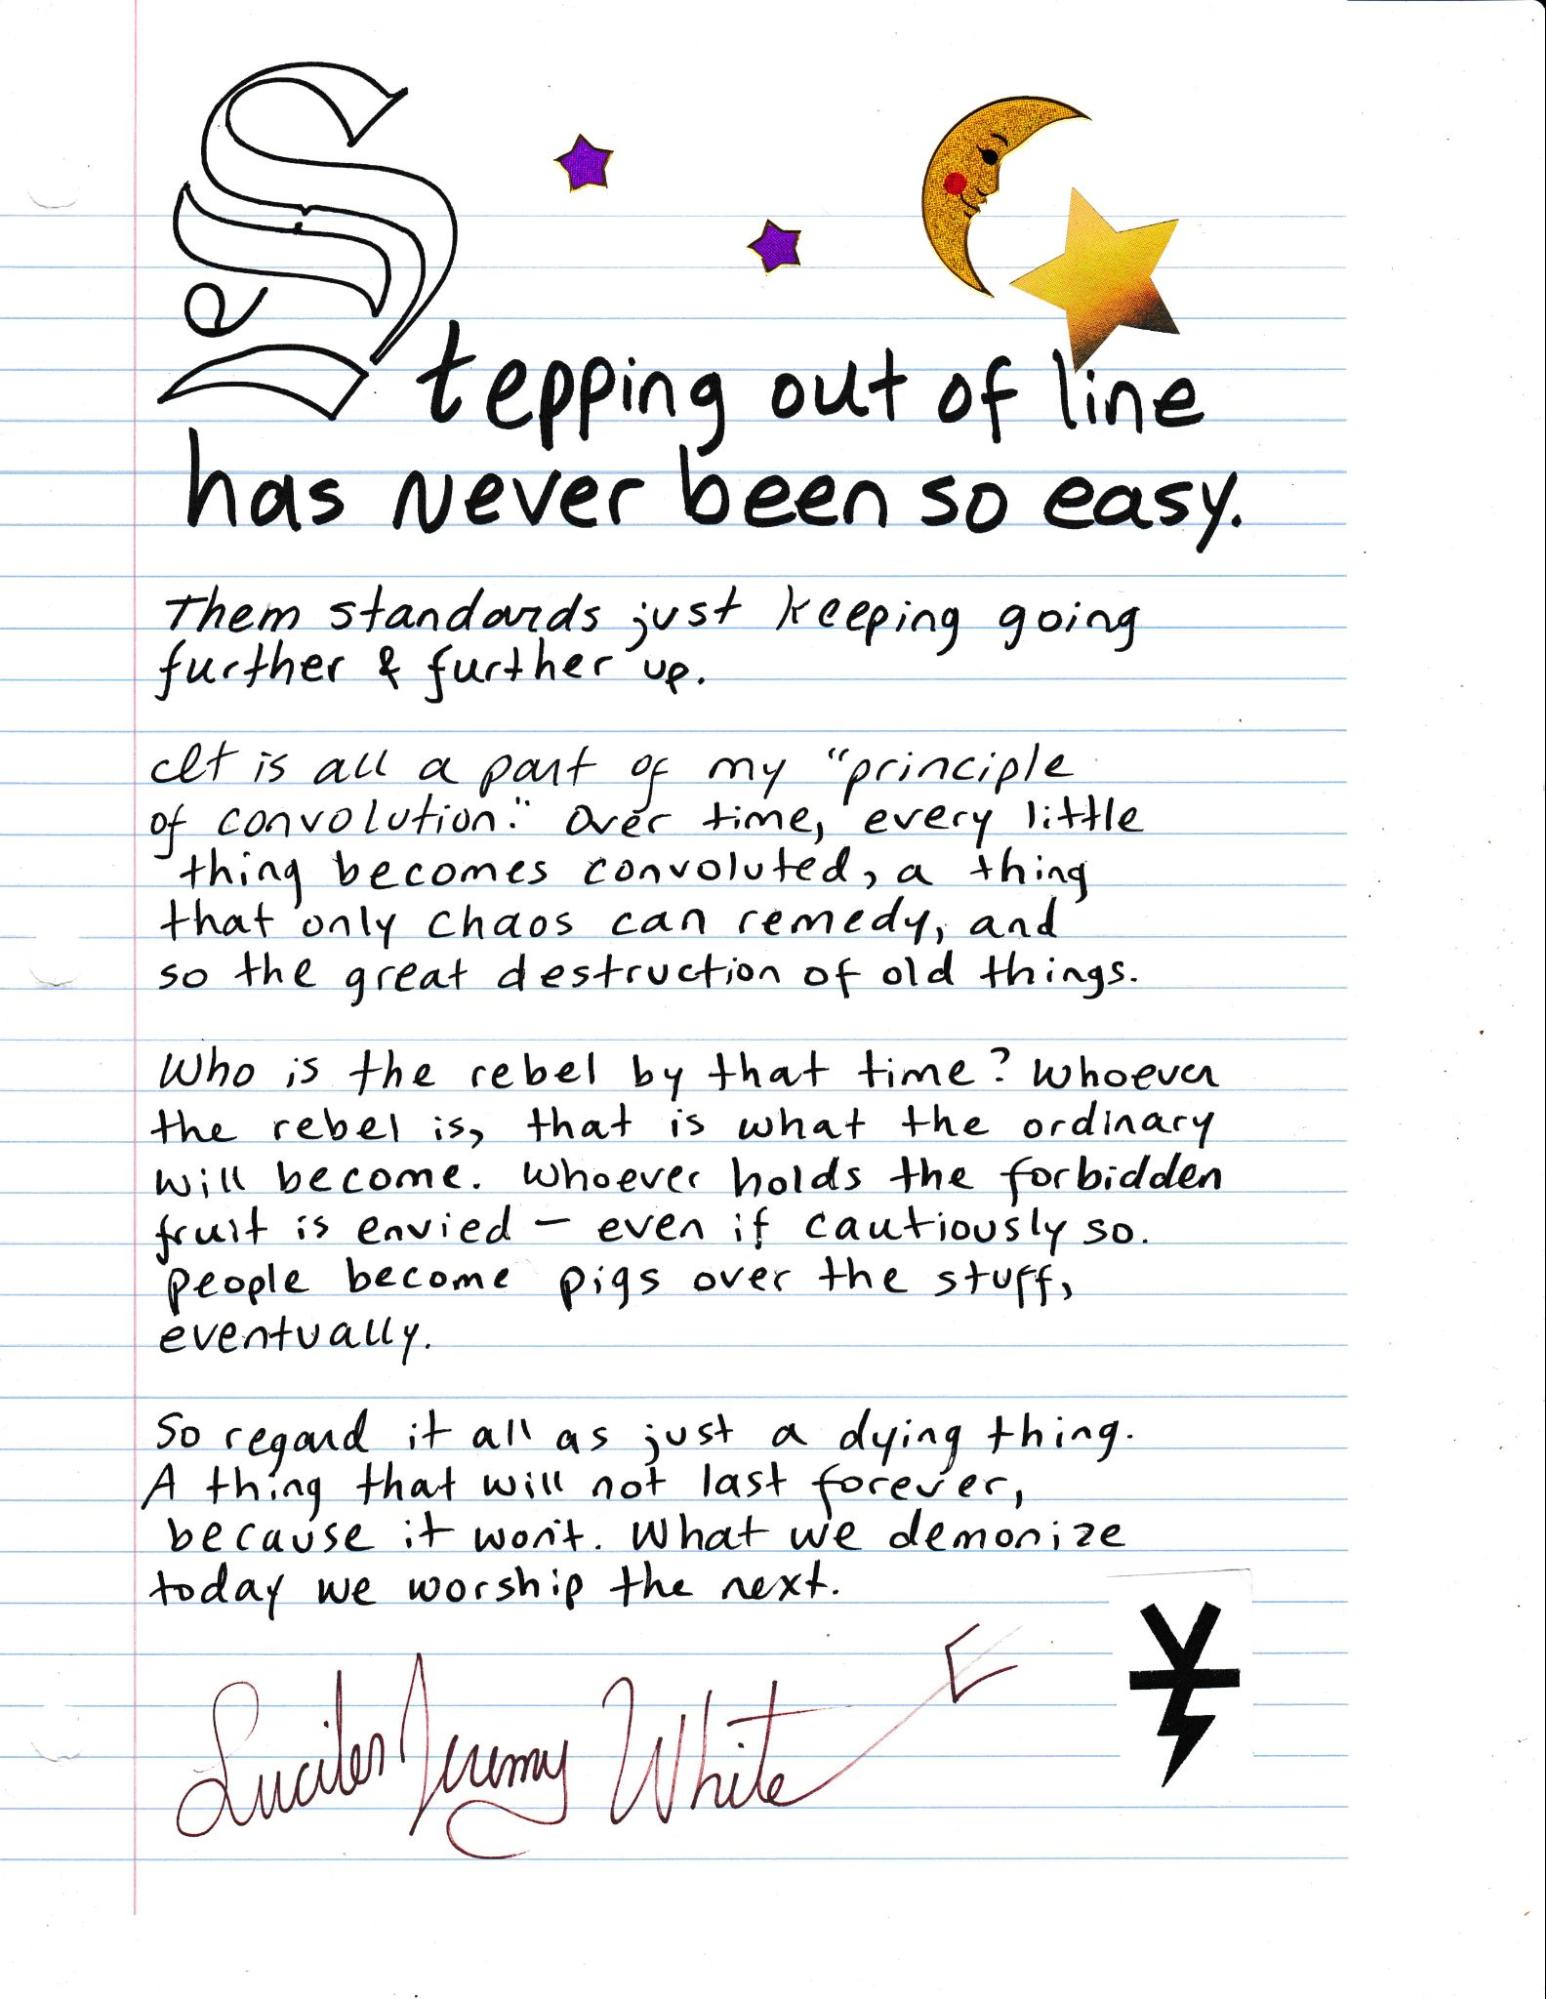 Stepping out of line
has never been so easy.
Them standards just keeping going
further & further up.
It is all a part of my "principle
of convolution." Over time, every little
thing becomes convoluted, a thing
that only chaos can remedy, and
so the great destruction of old things.
Who is the rebel by that time? Whoever
the rebel is, that is what the ordinary
will become. Whoever holds the forbidden
fruit is envied — even if cautiously so.
People become pigs over the stuff,
eventually.
So regard it all as just a dying thing.
A thing that will not last forever,
because it won't. What we demonize
today we worship the next.
Jeremy White